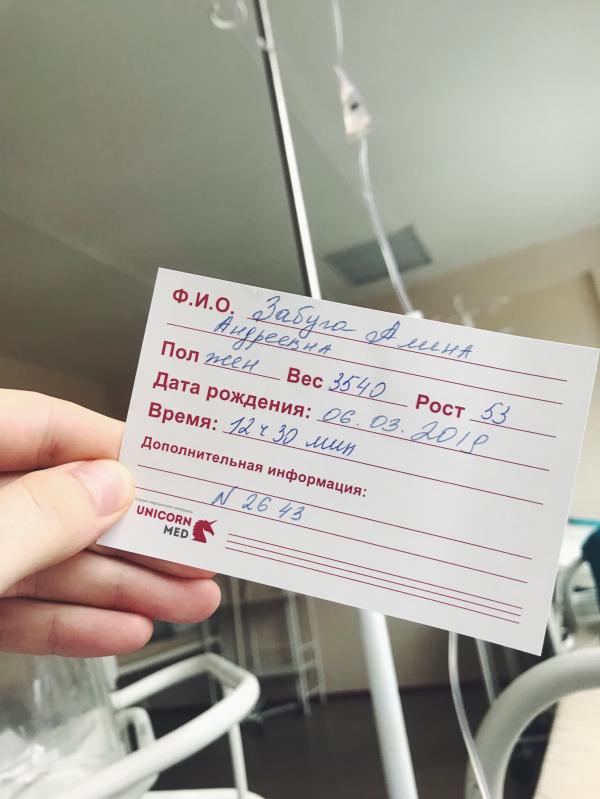 Ф.И.О. Забуга Алина
Андреевна
Пол жен Вес 3540 Рост 53
Дата рождения: 06.03.2019
Время: 12 ч 30 мин
Дополнительная информация:
N 2643
UNICORN
MED